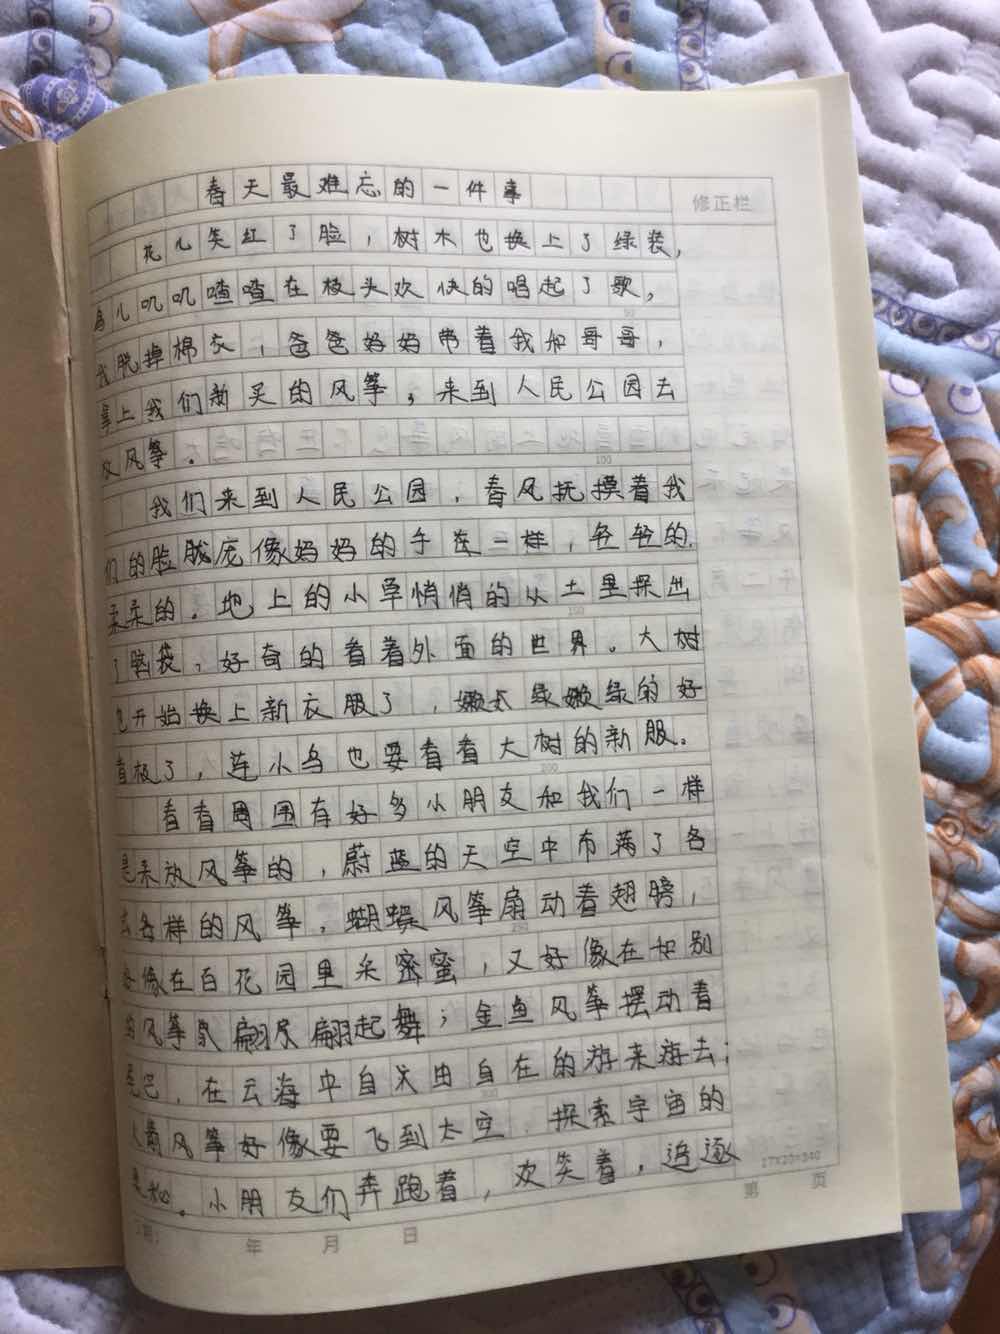 春天最难忘的一件事
修正栏
花儿笑红了脸，树木也换上了绿装，
鸟儿叽叽喳喳在枝头欢快的唱起了歌，
我脱掉棉衣，爸爸妈妈带着我和哥哥，
拿上我们新买的风筝，来到人民公园去
放风筝。
100
我们来到人民公园，春风抚摸着我
们的脸胧庞像妈妈的手在一样，轻轻的，
柔柔的。地上的小草悄悄的从土里探出
150
了脑袋，好奇的看着外面的世界。大树
也开始换上新衣服了，嫩绿嫩绿的好
看极了，连小鸟也要看看大树的新服。
200
看看周围有好多小朋友和我们一样
是来放风筝的，蔚蓝的天空中布满了各
式各样的风筝，蝴蝶风筝扇动着翅膀，
250
好像在百花园里采密蜜，又好像在和别
的风筝家翩尺翩起舞；金鱼风筝摆动着
尾巴，在云海中自由自在的游来游去；
300
火箭风筝好像要飞到太空，探索宇宙的
奥秘。小朋友们奔跑着，欢笑着，追逐
17X20=340
年 月 日 第 页